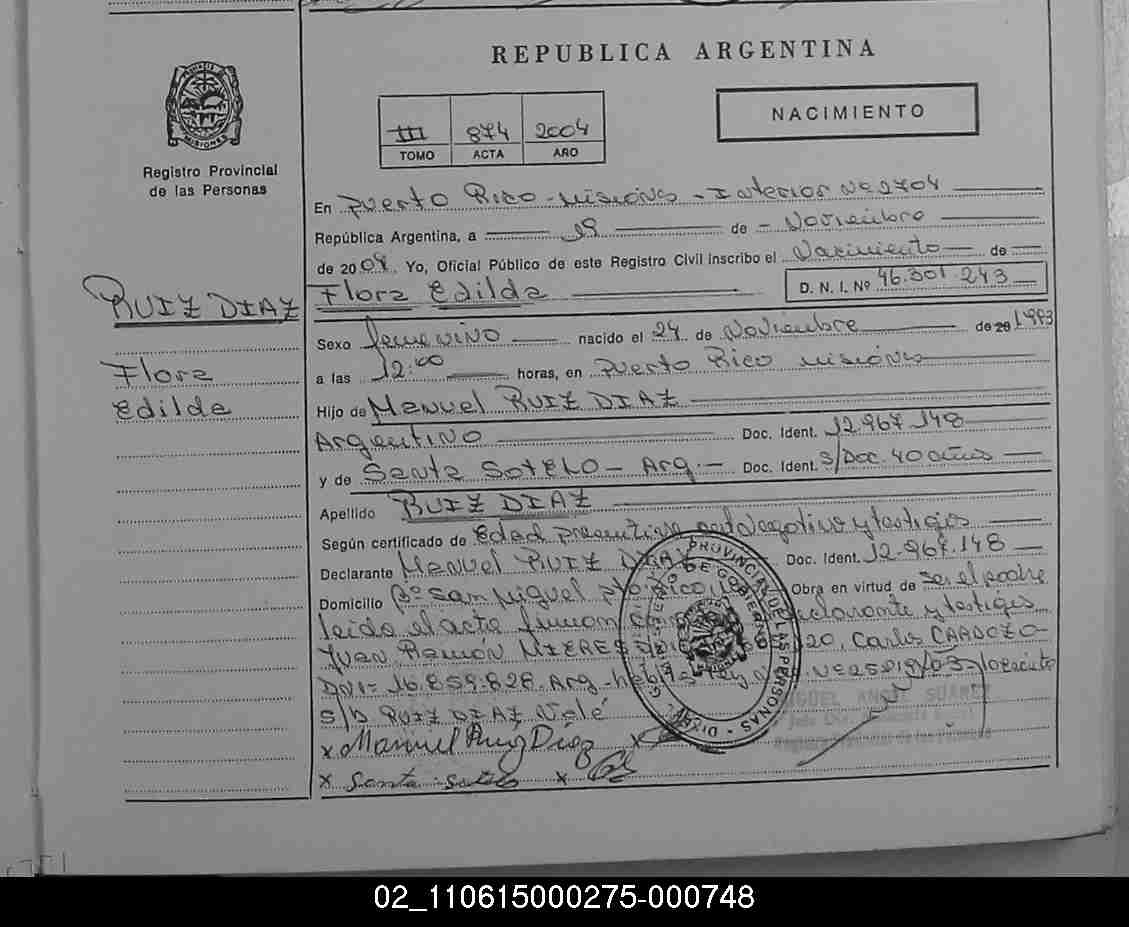 REPUBLICA ARGENTINA
NACIMIENTO
III 874 2004
TOMO ACTA AÑO
MISIONES
Registro Provincial
de las Personas
En Puerto Rico - Misiones - Interior Nº 2704
República Argentina, a 19 de - Noviembre
de 2004. Yo, Oficial Público de este Registro Civil inscribo el Nacimiento de
Flora Edilda D. N. I. Nº 46.301.243
RUIZ DIAZ
Flora
Edilda
Sexo femenino nacido el 24 de Noviembre de 20 1993
a las 12:00 horas, en Puerto Rico Misiones
Hijo de Manuel RUIZ DIAZ
Argentino Doc. Ident. 12.967.148
y de Santa SOTELO - Arg. - Doc. Ident. S/Doc. 40 años
Apellido RUIZ DIAZ
Según certificado de Edad presuntiva cert. Negativo y testigos
Declarante Manuel RUIZ DIAZ Doc. Ident. 12.967.148
Domicilio Bº San Miguel Pto Rico Obra en virtud de ser el padre
leida el acta firman declarante y testigos
Juan Ramon MIERES 20, Carlos CARDOZO
DNI= 16.859.828. Arg - 
S/b RUIZ DIAZ Vale
x Manuel Ruiz Díaz x
x Santa Sotelo x
PROVINCIAL DE LAS PERSONAS
DE GOBIERNO
MIGUEL ANGEL SUAREZ
02_110615000275-000748